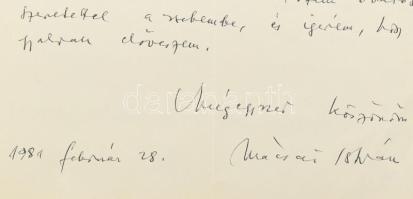 szeretettel a zsebembe, és igérem, hogy
gyakran előveszem.
Mégegyszer köszönöm
1981 február 28. Mácsai István